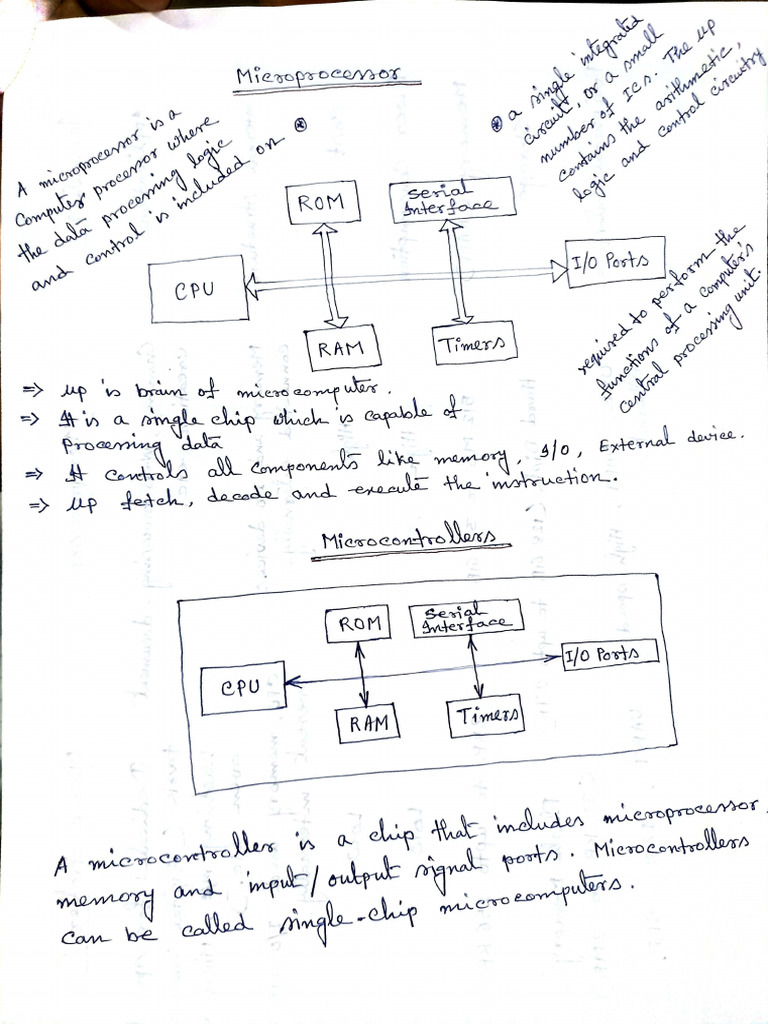 Microprocessor
A microprocessor is a
computer processor where
the data processing logic
and control is included on ⊛
⊛ a single integrated
circuit, or a small
number of ICs. The up
contains the arithmetic,
logic and control circuitry
required to perform the
functions of a computer's
central processing unit.
ROM
Serial
Interface
CPU
I/O Ports
RAM
Timers
=> up is brain of microcomputer.
=> It is a single chip which is capable of
processing data
=> It controls all components like memory, I/O, External device.
=> up fetch, decode and execute the instruction.
Microcontrollers
ROM
Serial
Interface
CPU
I/O Ports
RAM
Timers
A microcontroller is a chip that includes microprocessor,
memory and input/output signal ports. Microcontrollers
can be called single-chip microcomputers.